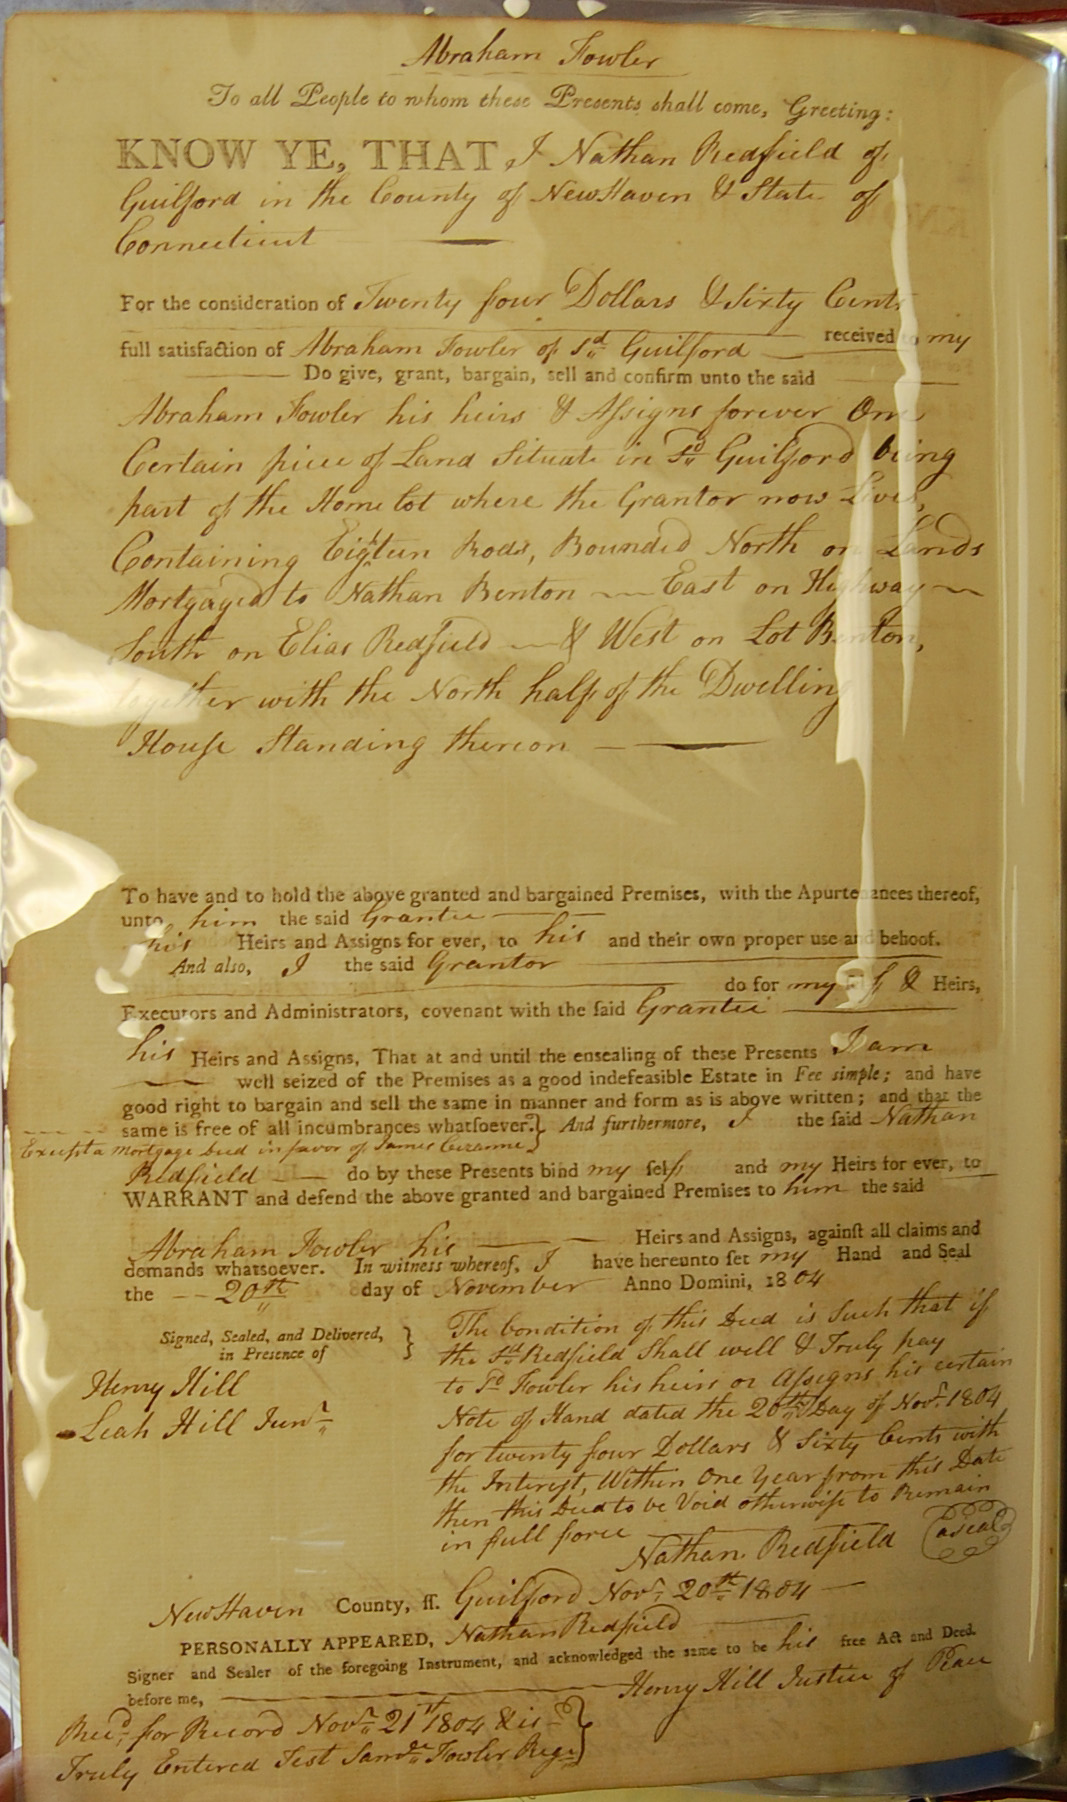 Abraham Fowler
To all People to whom these Presents shall come, Greeting:
KNOW YE, THAT I Nathan Redfield of
Guilford in the County of New Haven & State of
Connecticut
For the consideration of Twenty four Dollars & Sixty Cents
received to my
full satisfaction of Abraham Fowler of sd Guilford
Do give, grant, bargain, sell and confirm unto the said
Abraham Fowler his heirs & Assigns forever One
Certain piece of Land Situate in sd Guilford being
part of the Home lot where the Grantor now Lives,
Containing Eighteen Rods, Bounded North on Lands
Mortgaged to Nathan Benton — East on Highway —
South on Elias Redfield — & West on Lot Benton,
together with the North half of the Dwelling
House Standing thereon —
To have and to hold the above granted and bargained Premises, with the Apurtenances thereof,
unto him the said Grantee
his Heirs and Assigns for ever, to his and their own proper use and behoof.
And also, I the said Grantor
do for my self & Heirs,
Executors and Administrators, covenant with the said Grantee
his Heirs and Assigns, That at and until the ensealing of these Presents I am
well seized of the Premises as a good indefeasible Estate in Fee simple; and have
good right to bargain and sell the same in manner and form as is above written; and that the
same is free of all incumbrances whatsoever. And furthermore, I the said Nathan
Except a Mortgage Deed in favor of James
Redfield do by these Presents bind my self and my Heirs for ever, to
WARRANT and defend the above granted and bargained Premises to him the said
Abraham Fowler his Heirs and Assigns, against all claims and
demands whatsoever. In witness whereof, I have hereunto set my Hand and Seal
the 20th day of November Anno Domini, 1804
Signed, Sealed, and Delivered,
in Presence of
Henry Hill
Leah Hill Junr
The Condition of this Deed is Such that if
the sd Redfield Shall well & Truly pay
to sd Fowler his heirs or Assigns his certain
Note of Hand dated the 20th Day of Novr 1804
for twenty four Dollars & Sixty Cents with
the Interest, Within One Year from this Date
then this Deed to be Void otherwise to Remain
in full force
Nathan Redfield a seal
New Haven County, ss. Guilford Novr 20th 1804 —
PERSONALLY APPEARED, Nathan Redfield
Signer and Sealer of the foregoing Instrument, and acknowledged the same to be his free Act and Deed.
before me, Henry Hill Justice of Peace
Recd for Record Novr 21st 1804 & is
Truly Entered Test Samll Fowler Regr